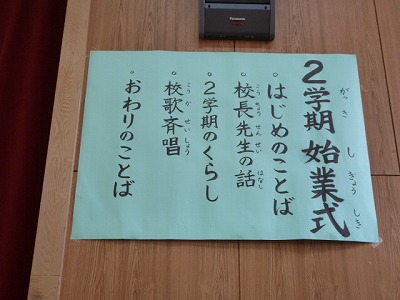 Panasonic
2学期 始業式
がっき しぎょうしき
。はじめのことば
。校長先生の話
こうちょうせんせい はなし
。2学期のくらし
。校歌斉唱
こうかせいしょう
。おわりのことば